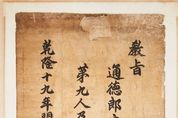 敎旨
通德郎
第九人及
乾隆十九年